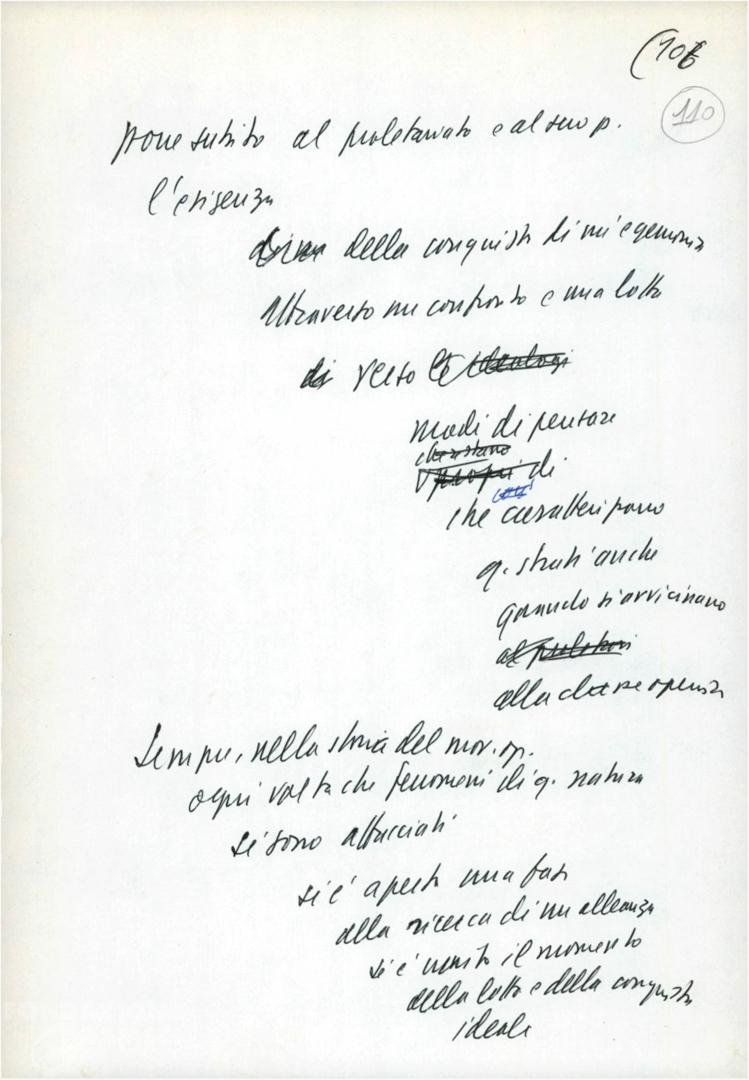 (106
110
pone subito al proletariato e al suo p.
l'esigenza
della conquista di un'egemonia
attraverso un confronto e una lotta
di verso le ideologi
modi di pensare
che
propri di
che caratterizzano
q. strati anche
quando si avvicinano
al proletari
alla classe operaia
Sempre, nella storia del mov. op.
ogni volta che fenomeni di q. natura
si sono affacciati
si è aperta una fase
alla ricerca di un alleanza
si è unito il momento
della lotta e della conquista
ideale